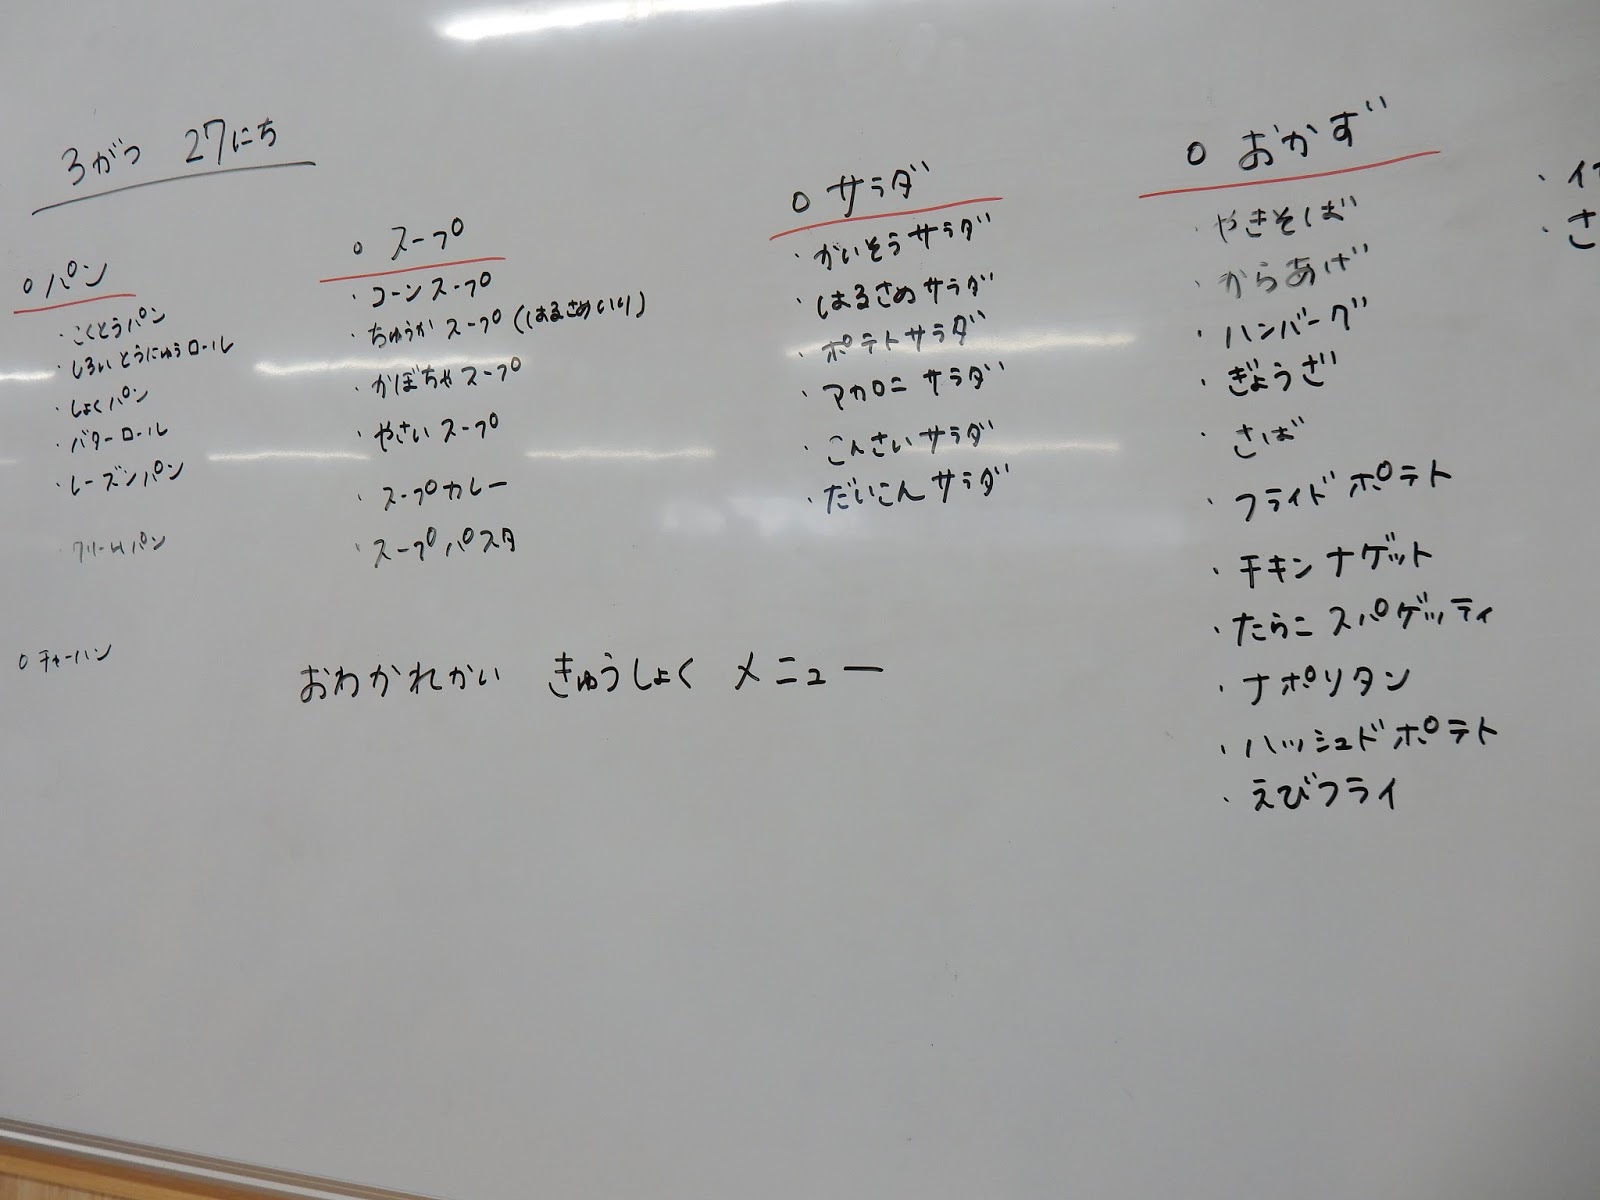 3がつ 27にち
○パン
・こくとうパン
・しろいとうにゅうロール
・しょくパン
・バターロール
・レーズンパン
・クリームパン
○チャーハン
○スープ
・コーンスープ
・ちゅうかスープ(はるさめいり)
・かぼちゃスープ
・やさいスープ
・スープカレー
・スープパスタ
○サラダ
・かいそうサラダ
・はるさめサラダ
・ポテトサラダ
・マカロニサラダ
・こんさいサラダ
・だいこんサラダ
○おかず
・やきそば
・からあげ
・ハンバーグ
・ぎょうざ
・さば
・フライドポテト
・チキンナゲット
・たらこスパゲッティ
・ナポリタン
・ハッシュドポテト
・えびフライ
おわかれかい きゅうしょく メニュー